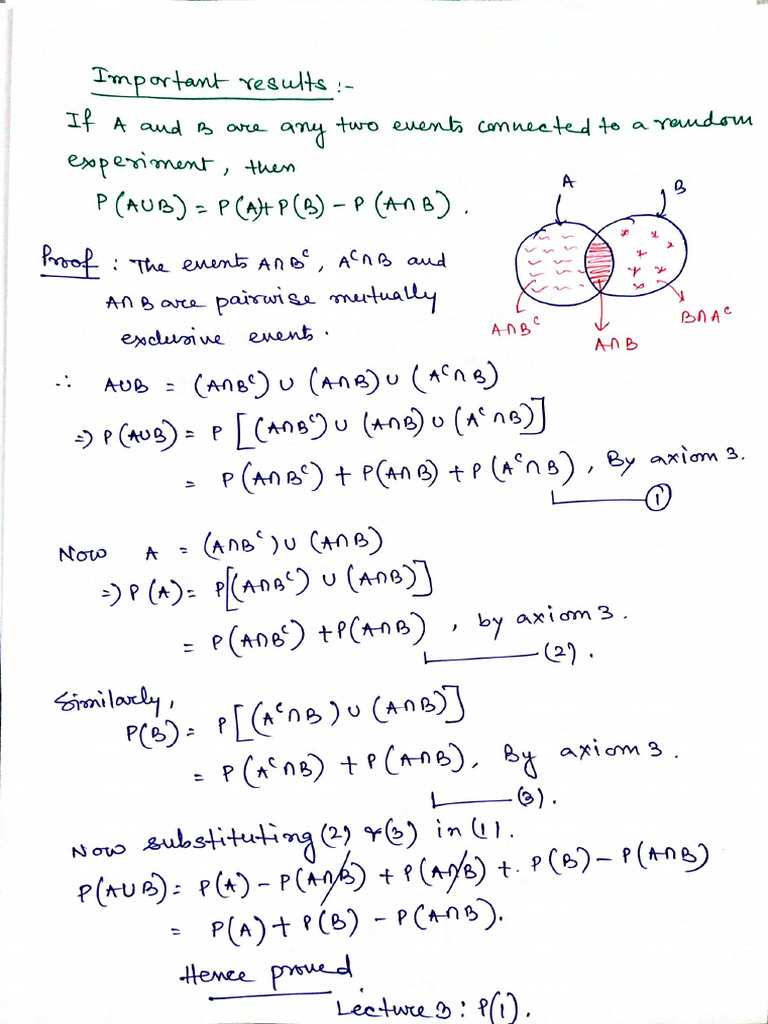 Important results :-
If A and B are any two events connected to a random
experiment, then
P(A∪B) = P(A)+P(B) - P(A∩B).
A
B
A∩Bᶜ
A∩B
B∩Aᶜ
Proof : The events A∩Bᶜ, Aᶜ∩B and
A∩B are pairwise mutually
exclusive events.
∴ A∪B = (A∩Bᶜ) ∪ (A∩B) ∪ (Aᶜ∩B)
⇒ P(A∪B) = P[(A∩Bᶜ) ∪ (A∩B) ∪ (Aᶜ∩B)]
= P(A∩Bᶜ) + P(A∩B) + P(Aᶜ∩B), By axiom 3.
①
Now A = (A∩Bᶜ) ∪ (A∩B)
⇒ P(A) = P[(A∩Bᶜ) ∪ (A∩B)]
= P(A∩Bᶜ) + P(A∩B), by axiom 3.
(2).
Similarly,
P(B) = P[(Aᶜ∩B) ∪ (A∩B)]
= P(Aᶜ∩B) + P(A∩B), By axiom 3.
(3).
Now substituting (2) & (3) in (1).
P(A∪B) = P(A) - P(A∩B) + P(A∩B) + P(B) - P(A∩B)
= P(A) + P(B) - P(A∩B).
Hence proved
Lecture 3 : P(1).